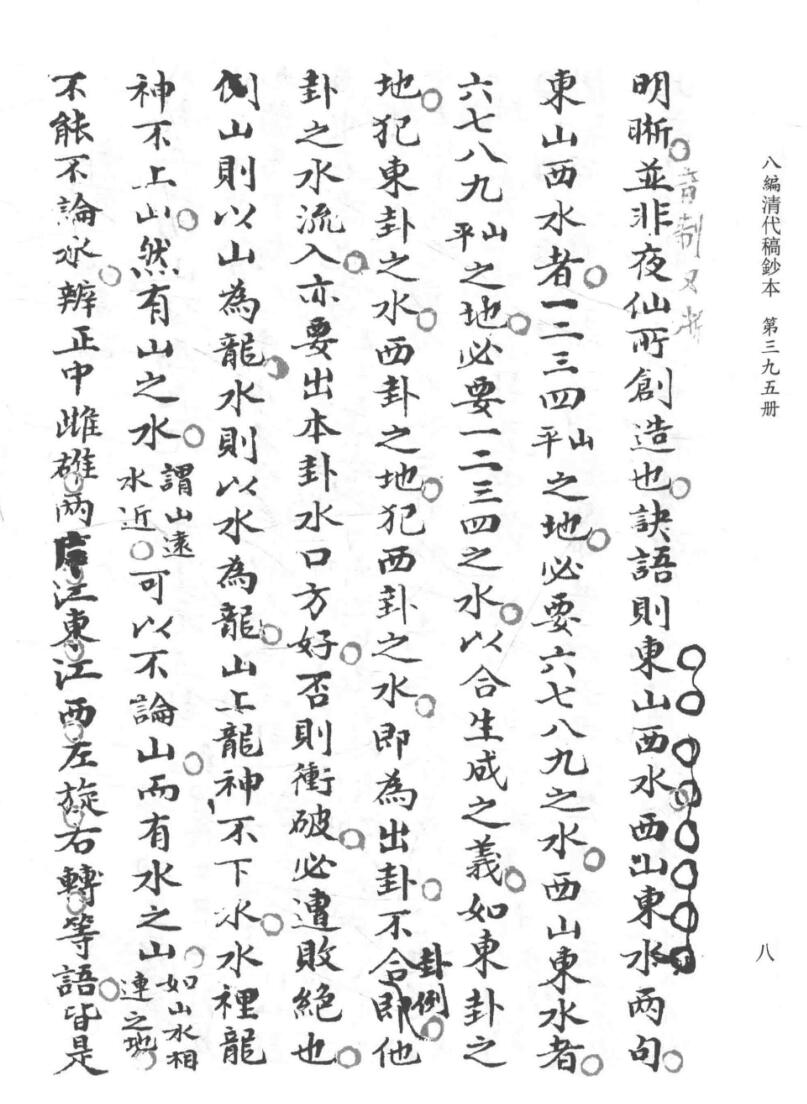 八編清代稿鈔本　第三九五册
八
明晰並非夜仙所創造也訣語則東山西水西山東水兩句
東山西水者一二三四山平之地必要六七八九之水西山東水者
六七八九山平之地必要一二三四之水以合生成之義如東卦之
地犯東卦之水西卦之地犯西卦之水即為出卦不合卦例即他
卦之水流入亦要出本卦水口方好否則衝破必遭敗絕也
例山則以山為龍水則以水為龍山上龍神不下水水裡龍
神不上山然有山之水謂山遠水近可以不論山而有水之山如山水相連之地
不能不論水辨正中雌雄兩 江東江西左旋右轉等語皆是